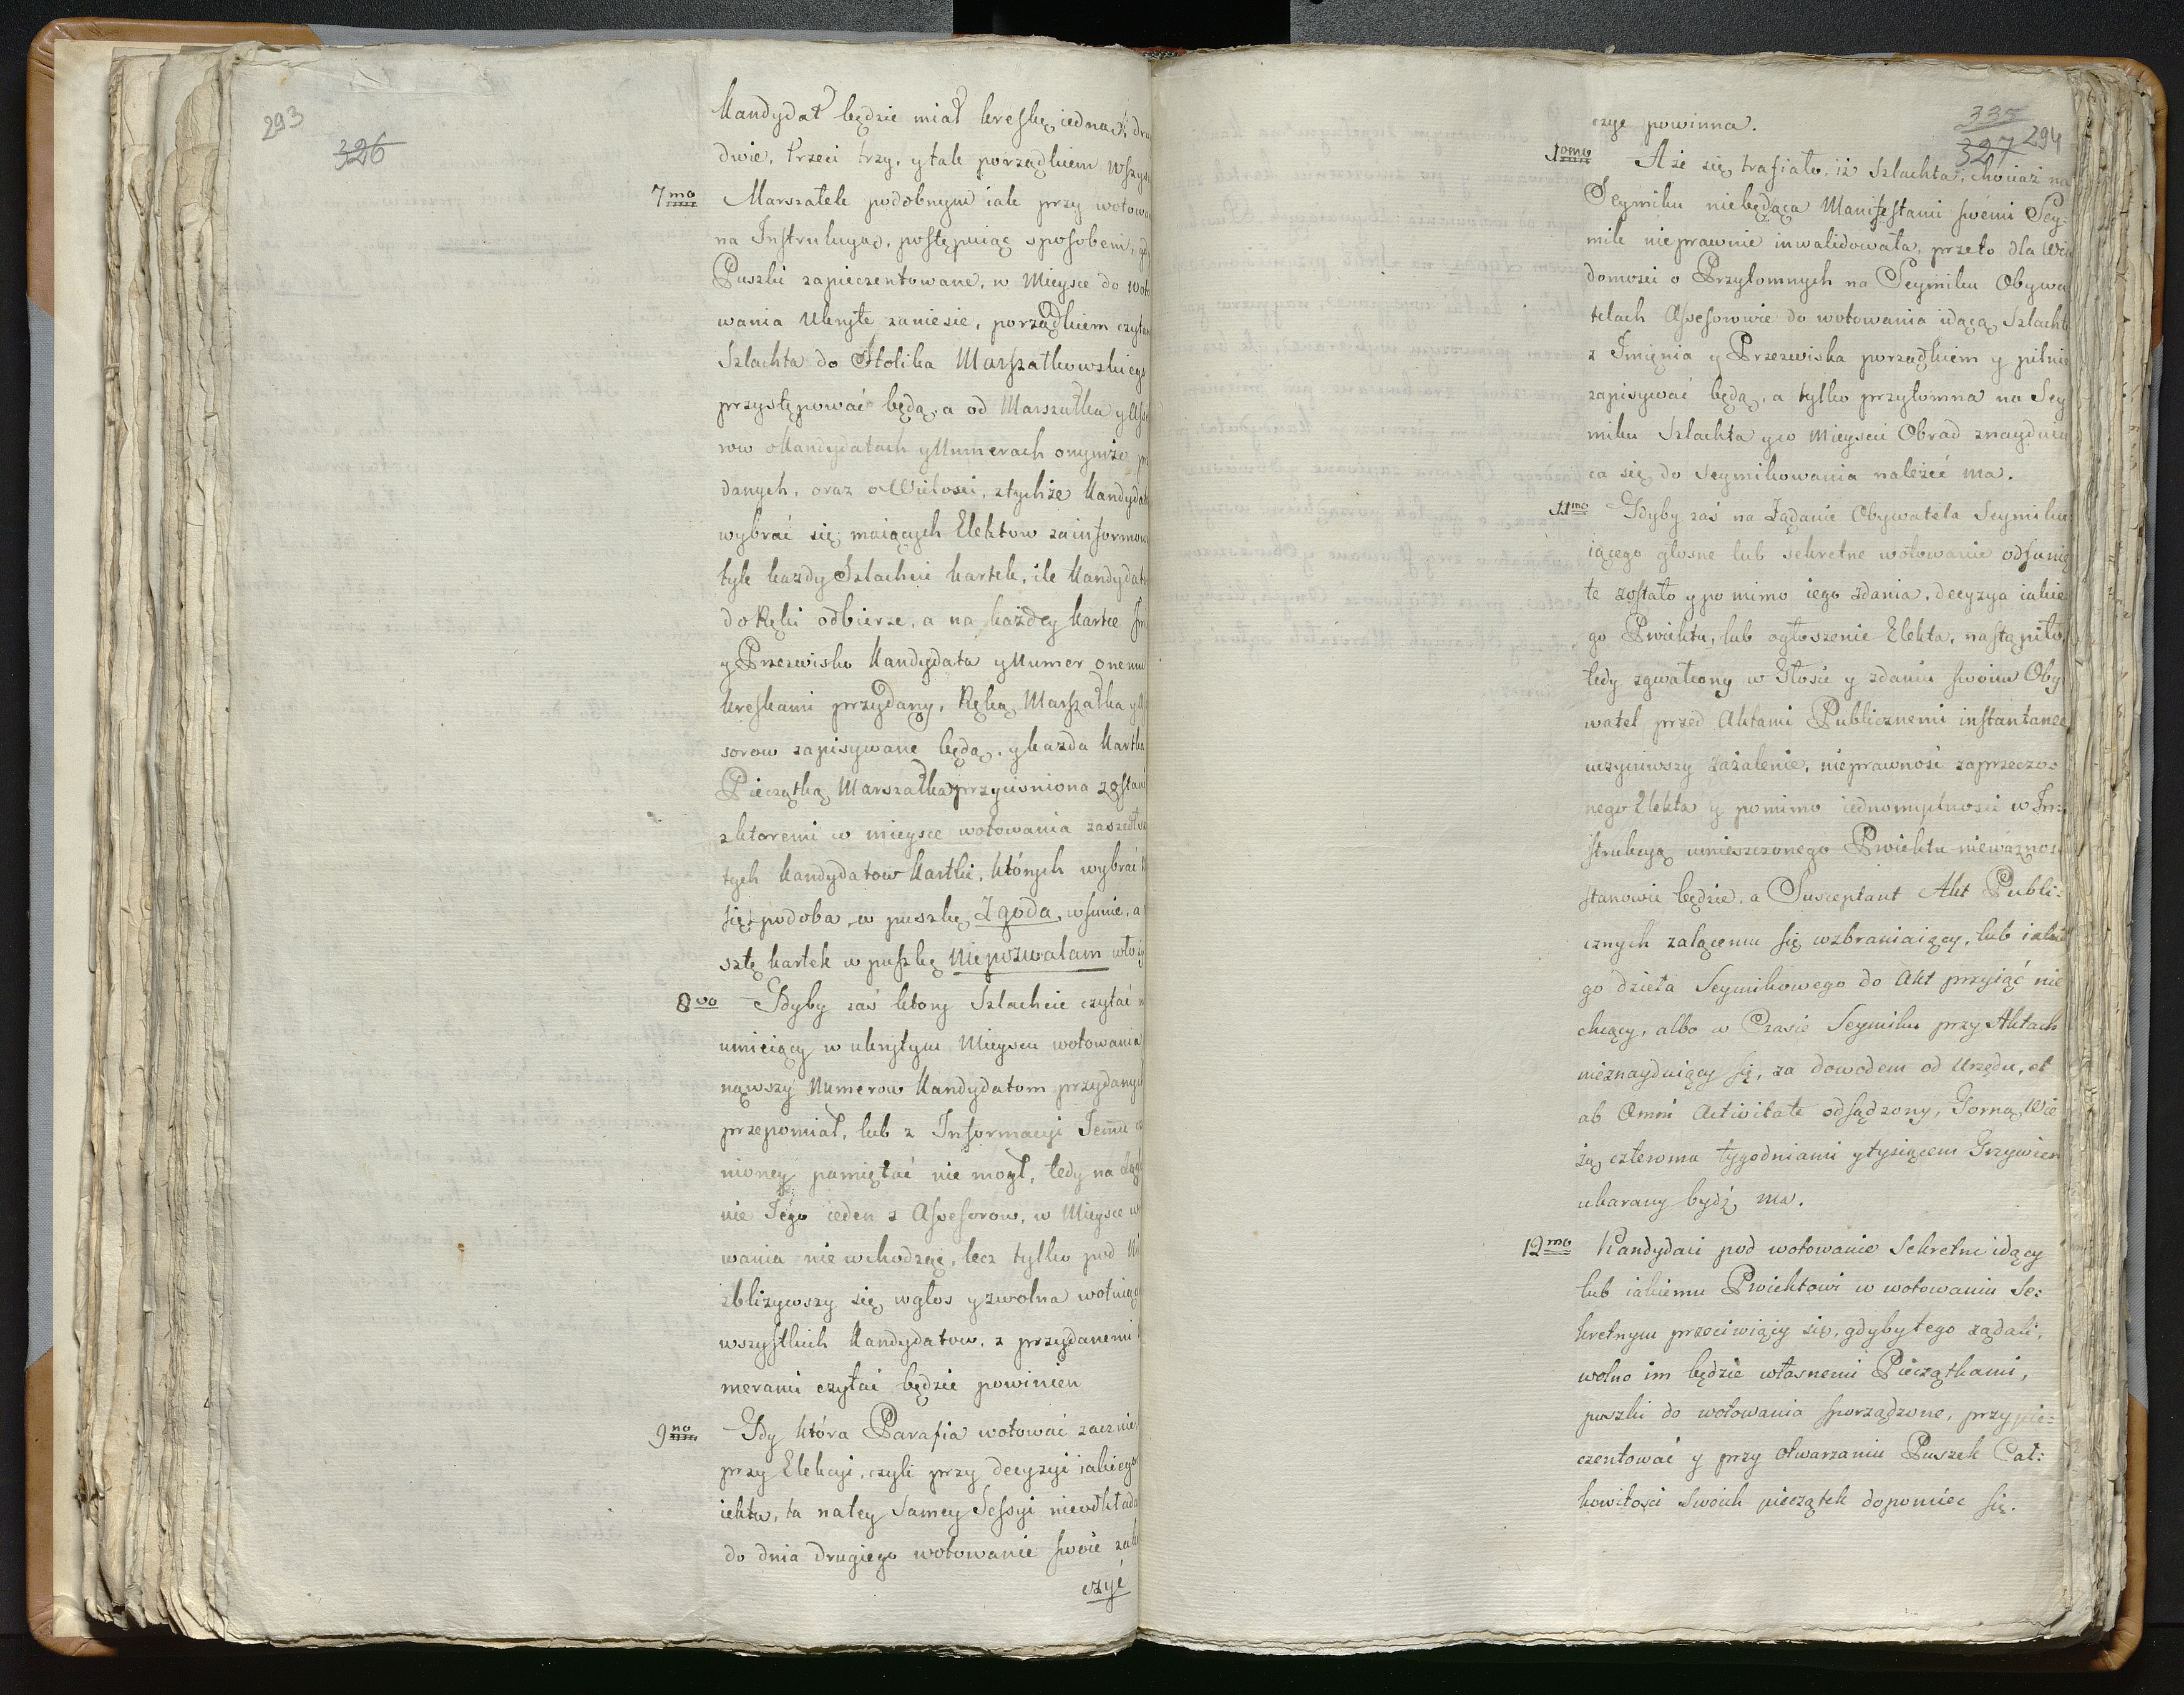 293
326
Kandydat będzie miał kreskę iedną, dru
dwie, trzeci trzy, y tak porządkiem wszys
7mo Marszałek podobnym iak przy wotowa
na Instrukcyą, postępuiąc sposobem, gdy
Puszki zapieczentowane, w Mieysce do woto
wania Ukryte zaniesie, porządkiem czytan
Szlachta do Stolika Marszałkowskiego
przystępować będą, a od Marszałka y Asse
row o Kandydatach y Numerach onymże prz
danych, oraz o Wielości, z tychże Kandydat
wybrać się maiących Elektow zainformow
tyle każdy Szlachcic kartek, ile Kandydatow
do Ręki odbierze, a na każdey kartce Imi
y Przezwisko Kandydata y Numer onemu
kreskami przydany, Ręką Marszałka y As
sorow zapisywane będą, y każda Kartka
Pieczątką Marszałka przyciśniona zostani
z ktoremi w mieysce wotowania zaszedłsz
tych Kandydatow Kartki, których wybrać
się podoba w puszkę Zgoda, wsunie, a
sztę kartek w puszkę Niepozwalam włoży
8vo Gdyby zaś ktory Szlachcic czytać n
umieiący w ukrytym Mieyscu wotowania
nąwszy Numerow Kandydatom przydanych
przepomiał, lub z Informacyi Jemu
nioney pamiętać nie mogł, tedy na żąda
nie Jego ieden z Assessorow, w Mieysce wo
wania nie wchodząc, lecz tylko pod
zbliżywszy się w głos y zwolna wotuiące
wszystkich Kandydatow, z przydanemi
merami czytać będzie powinien
9no Gdy która Parafia wotować zacznie,
przy Elekcyi, czyli przy decyzyi iakiego
iektu, ta na tey Samey Sessyi nieodkłada
do dnia drugiego wotowanie swoie zak
czyć
335
327 294
czyć powinna.
10mo A że się trafiało, iż Szlachta, chociaż na
Seymiku niebędąca Manifestami swemi Sey:
mik nieprawnie inwalidowała, przeto dla Wia
domości o Przytomnych na Seymiku Obywa
telach Assesorowie do wotowania idącą Szlachtę
z Imienia y Przezwiska porządkiem y pilnie
zapisywać będą, a tylko przytomna na Sey
miku Szlachta y w Mieyscu Obrad znayduią
ca się do Seymikowania należeć ma.
11mo Gdyby zaś na Żądanie Obywatela Seymiku
iącego głosne lub sekretne wotowanie odsunię
te zostało y po mimo iego zdania, decyzya iakie
go Proiektu, lub ogłoszenie Elekta, nastąpiło,
tedy zgwałcony w Głosie y zdaniu swoim Oby
watel przed Aktami Publicznemi instantanee
uczyniwszy zażalenie, nieprawność zaprzeczo
nego Elekta y pomimo iednomyślność w In:
strukcyą umieszczonego Proiektu nieważność
stanowić będzie, a Susceptant Akt Publi:
cznych żalącemu się wzbraniaiący, lub iakie
go dzieła Seymikowego do Akt przyiąć nie
chcący, albo w Czasie Seymiku przy Aktach
nieznayduiący się, za dowodem od Urzędu, et
ab Omni Activitate odsądzony, Gorną Wie
żą czterema tygodniami y tysiącem Grzywien
ukarany bydź ma.
12mo Kandydaci pod wotowanie Sekretne idący
lub iakiemu Proiektowi w wotowaniu Se:
kretnym przeciwiący się, gdyby tego żądali,
wolno im będzie własnemi Pieczątkami,
puszki do wotowania sporządzone, przypie:
czentować y przy Otwarzaniu Puszek Cał:
kowitości Swoich pieczątek dopomieć się.